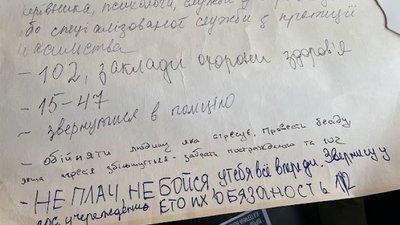 керівника, психолога, служби у
бо спеціалізованої служби з протидії
насильства
– 102, заклади охорони здоров'я
– 15-47
– звернутися в поліцію
– обійняти людину яка агресує. Провести бесіду,
якщо агресія збільшується - забрать постраждалого та 102
– НЕ ПЛАЧ, НЕ БОЙСЯ, У ТЕБЯ ВСЁ ВПЕРЕДИ.
ГОС УЧЕРЕЖДЕНИЕ ЕТО ИХ ОБЯЗАНОСТЬ